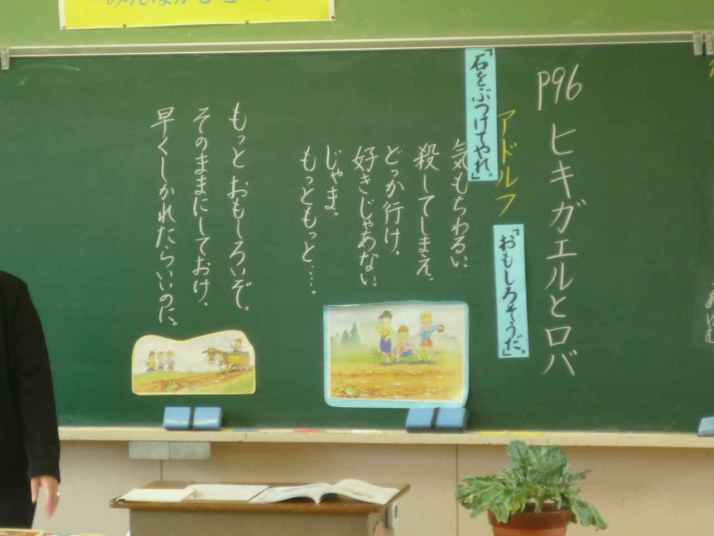 P96 ヒキガエルとロバ
アドルフ
「石をぶつけてやれ。」
「おもしろそうだ。」
気もちわるい。
殺してしまえ。
どっか行け。
好きじゃあない。
じゃま。
もっともっと……。
もっとおもしろいぞ。
そのままにしておけ。
早くしかれたらいいのに。